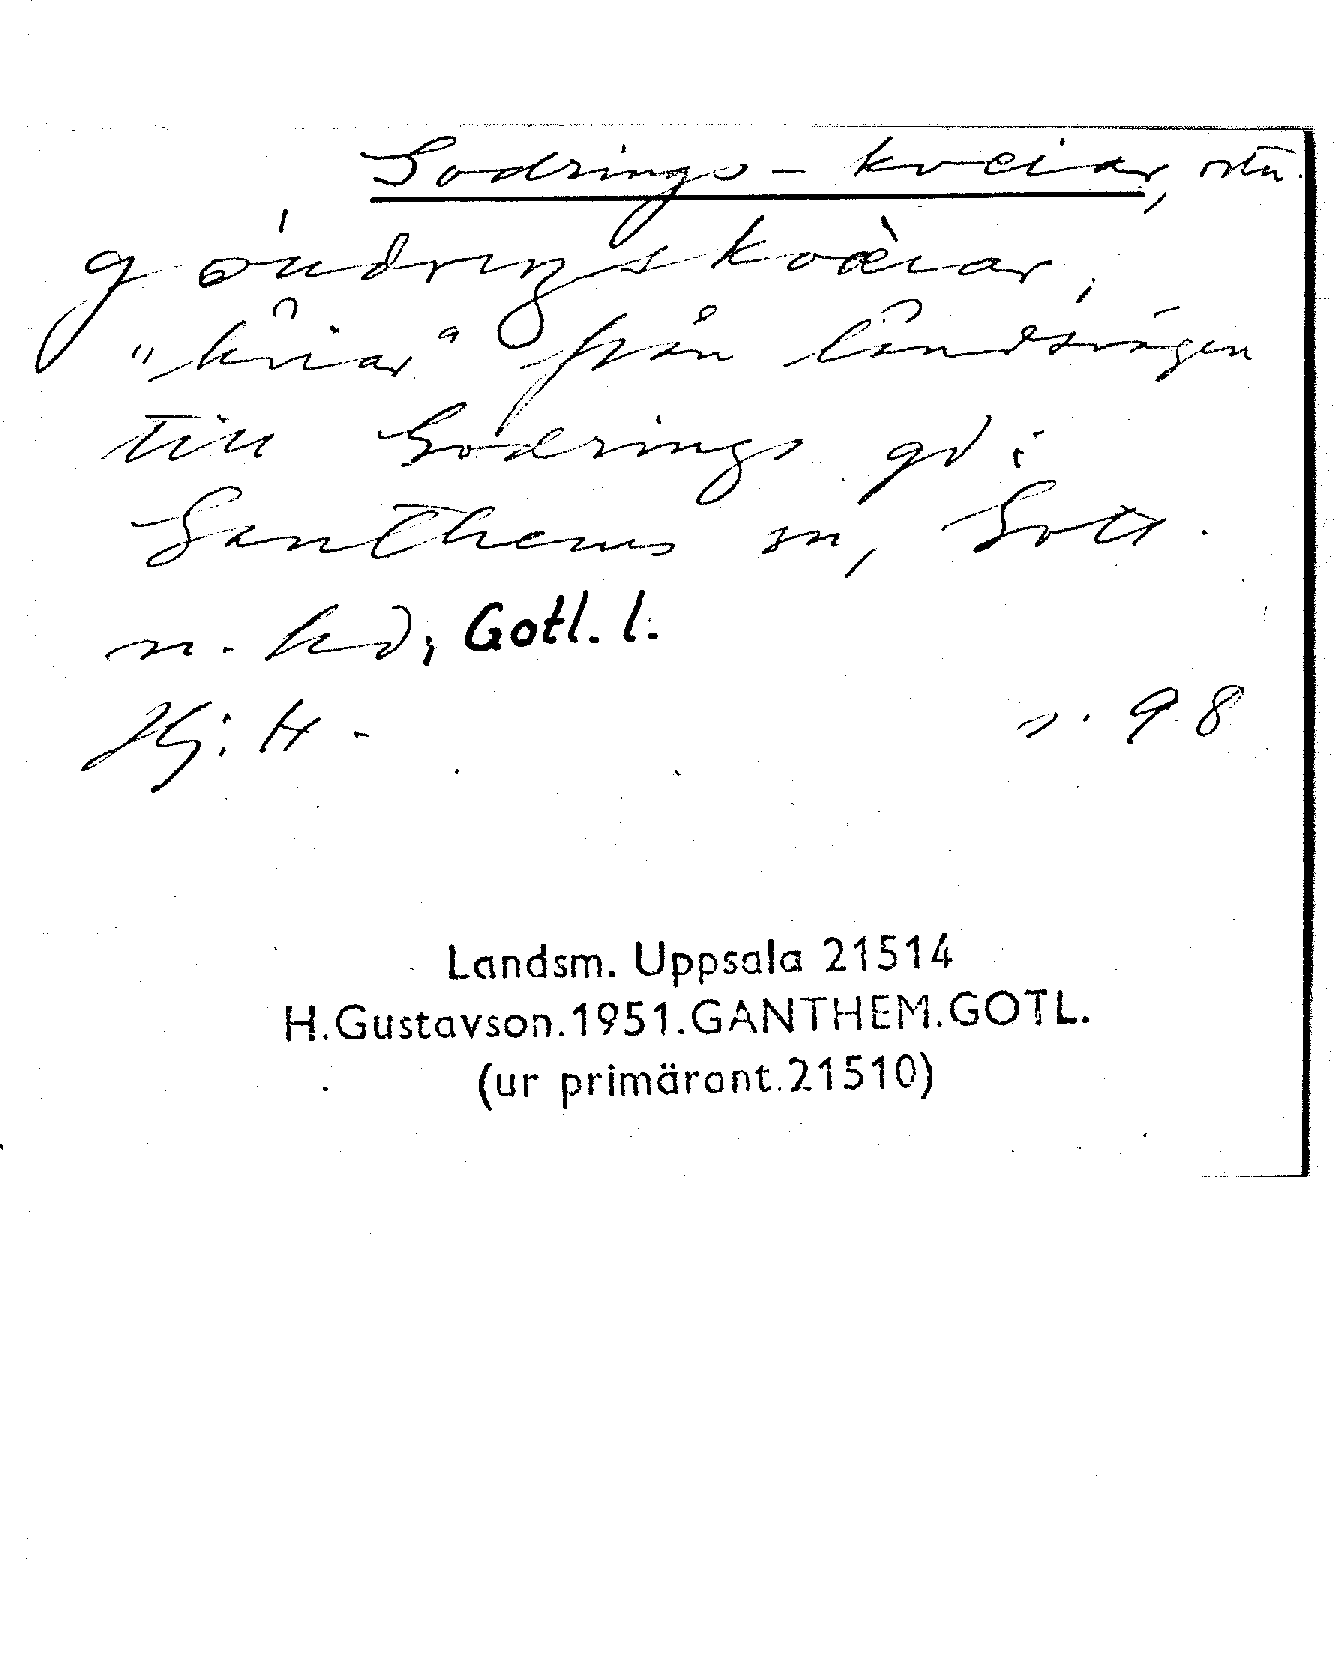 Godrings-kveiar, ortn.
góuðriŋskvàiar,
"kviar" från landsvägen
till Godrings gd i
Ganthems sn, Gotl.
n. hd, Gotl. l.
Hj. H. s. 98
Landsm. Uppsala 21514
H.Gustavson.1951.GANTHEM.GOTL.
(ur primärant.21510)